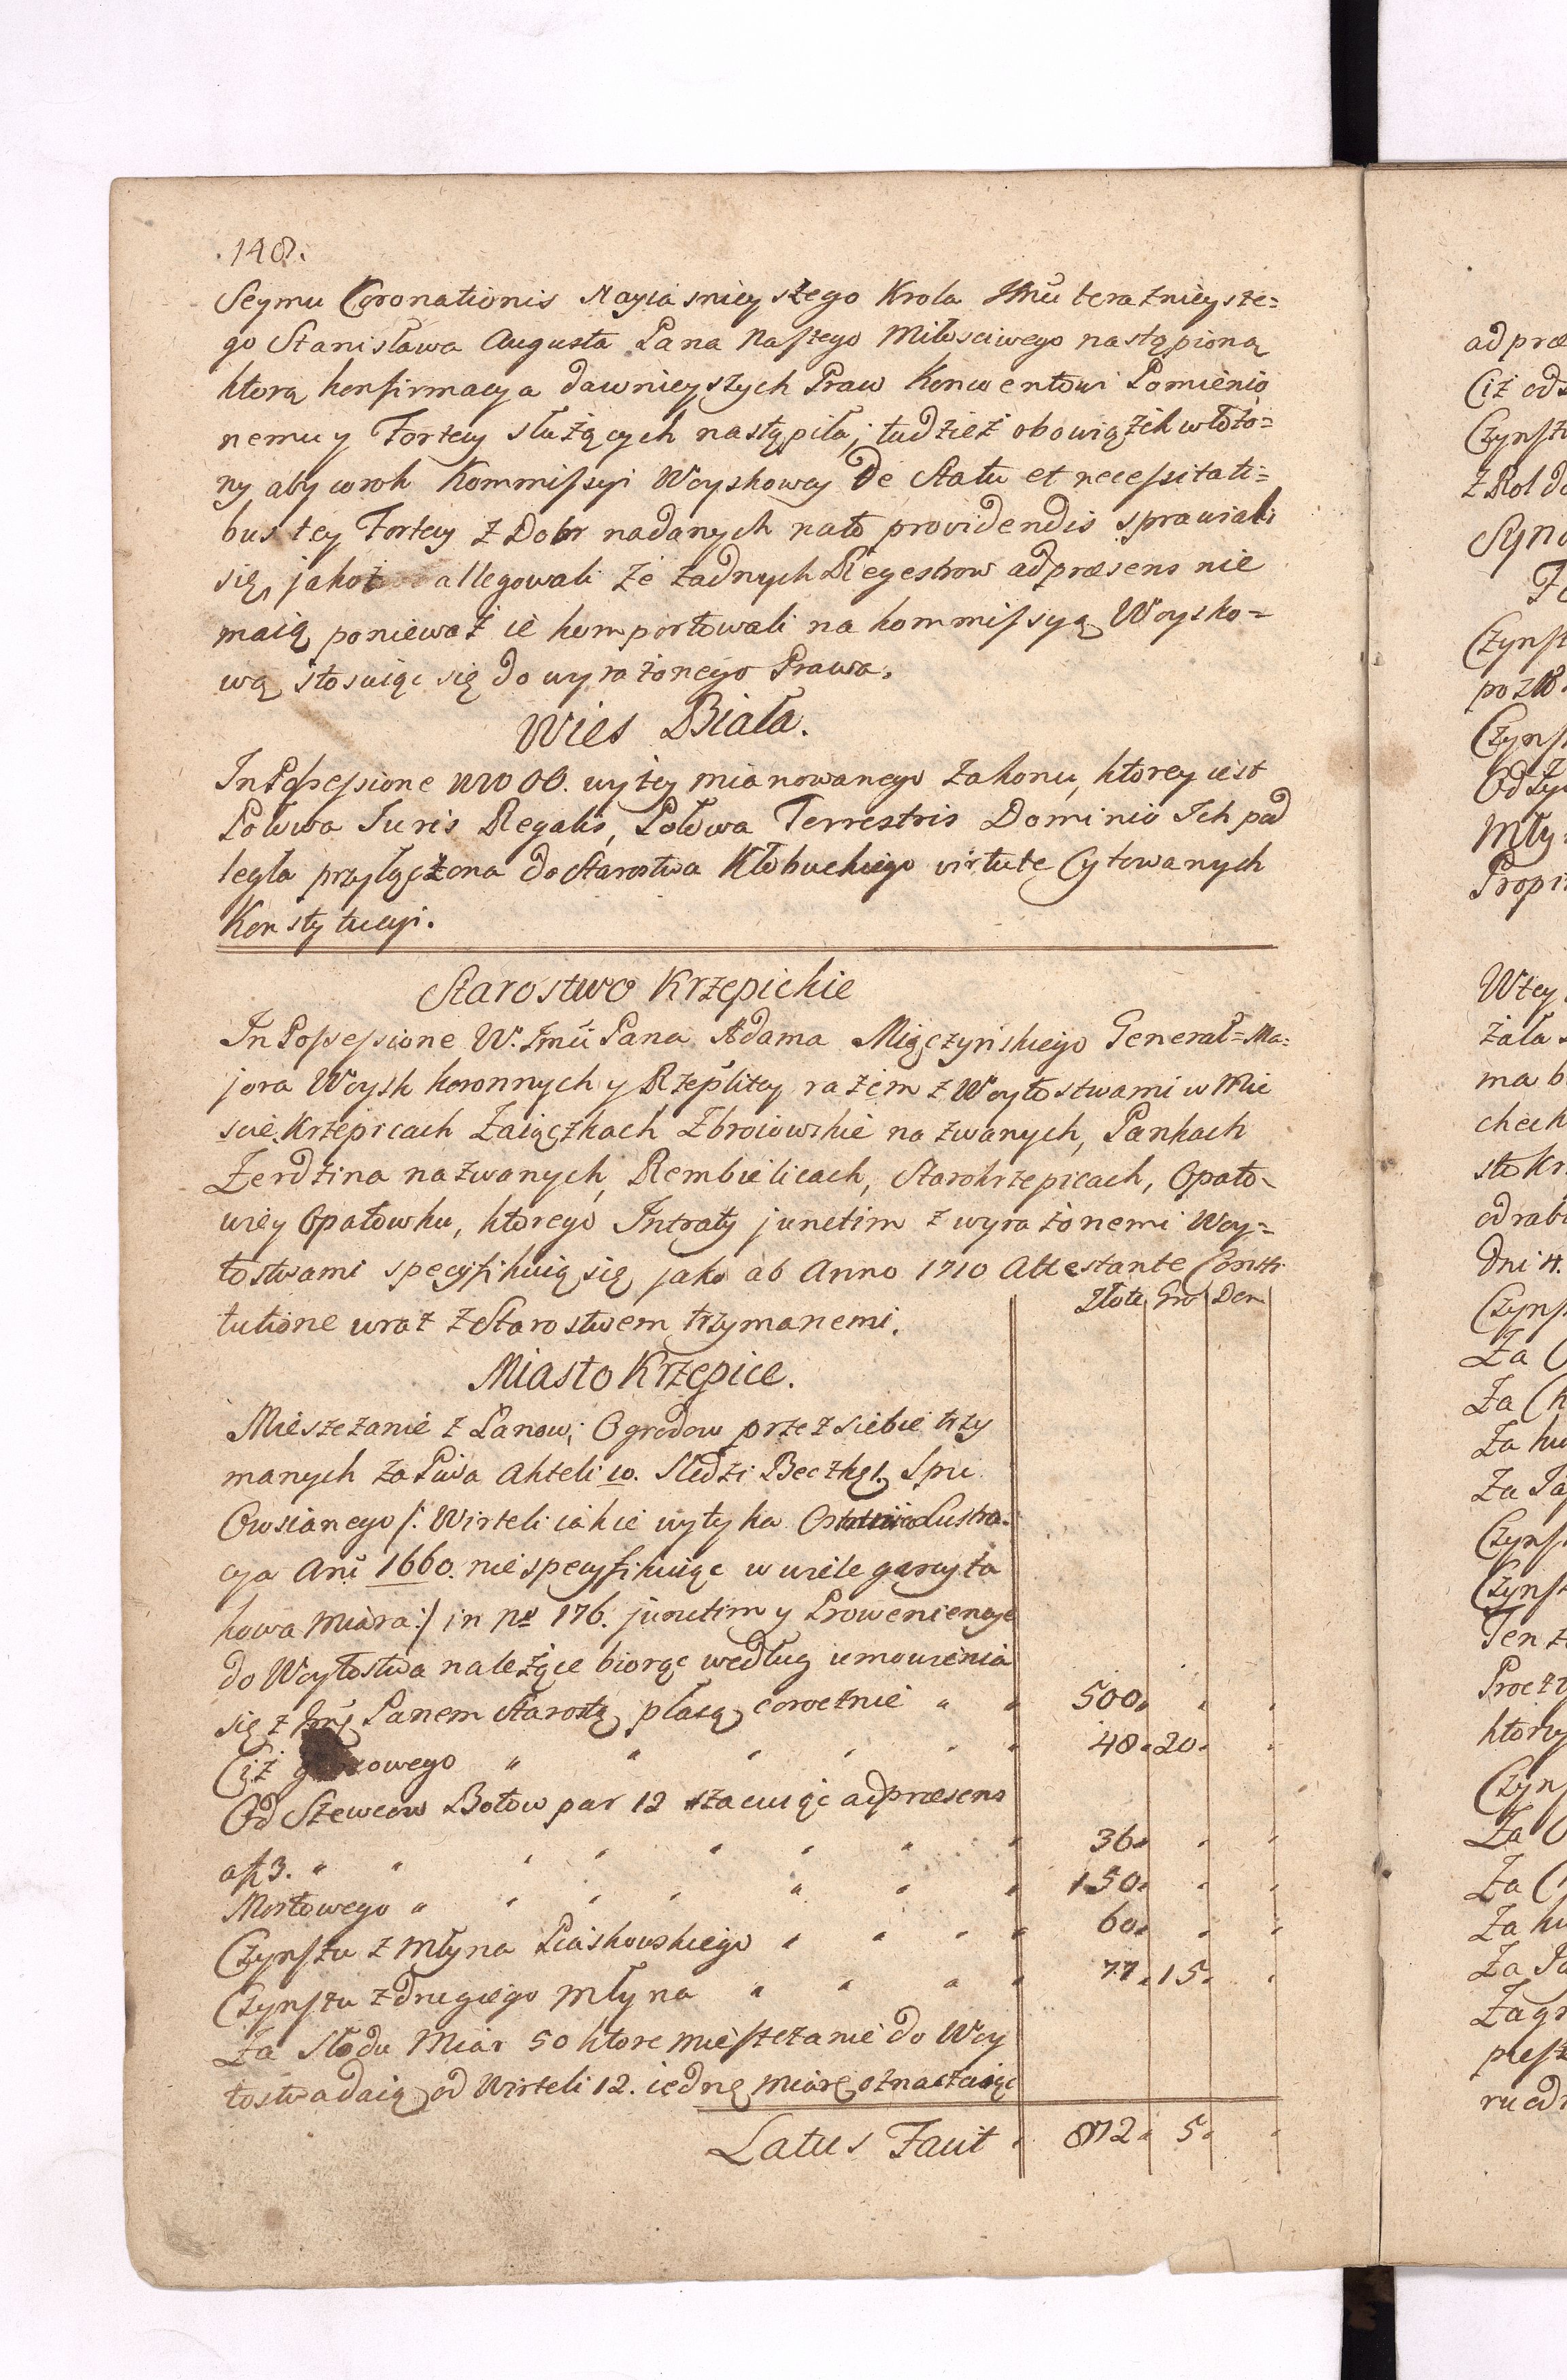 .148.
Seymu Coronationis Nayiasnieyszego Krola Jmći teraznieysze=
go Stanisława Augusta Pana Naszego Miłosciwego nastąpioną
ktorą konfirmacya dawnieyszych Praw Konwentowi Pomienio
nemu y Fortecy służących nastąpiła; tudzież obowiązek włożo=
ny aby corok Kommissyi Woyskowey De Statu et necessitati=
bus tey Fortecy z Dobr nadanych nato providendis sprawiali
się, jakoż allegowali że żadnych Regestrow ad præsens nie
maią ponieważ ie komportowali na kommissyą Woysko=
wą stosuiąc się do wyrażonego Prawa.
Wies Biała.
In Possessione WW OO. wyżey mianowanego Zakonu, ktorey iest
Połowa Juris Regalis, Połowa Terrestris Dominio Ich pod
legła przyłączona do Starostwa Kłobuckiego virtute Cytowanych
Konstytucyi.
Starostwo Krzepickie
In Possessione W. Jmći Pana Adama Miączyńskiego Generał=Ma=
jora Woysk koronnych y Rzeplitey razem z Woytostwami w Mie
scie Krzepicach Zaiączkach Zbroiowskie nazwanych, Pankach
Żerdzina nazwanych, Rembielicach, Starokrzepicach, Opato=
wie y Opatowku, ktorego Intraty junctim z wyrażonemi Woy=
tostwami specyfikuią się jako ab Anno 1710 Attestante Consti
tutione uraz z Starostwem trzymanemi.
Złote Gro Den
Miasto Krzepice.
Mieszczanie z Łanow, Ogrodow przez siebie trzy
manych za Piwa Achteli 10. Sledzi Beczkę 1. Spu
Owsianego /: Wirteli iakie wytyka Ostatnia Lustra=
cya Ani 1660. nie specyfikuiąc w wiele garcy ta
kowa miara :/ in No 176. junctim y Prowenienye
do Woytostwa należące biorąc według umowienia
się z Jmć Panem Starostą płacą corocznie " " 500 " "
Ciż owego " " " " " " 48 " 20 "
Od Szewcow Botow par 12 szacuiąc ad præsens
a fl 3. " " " " " " " " 36 " "
Mostowego " " " " " " " 150 " "
Czynszu z Młyna Piaskowskiego " " " " 60 " "
Czynszu z drugiego Młyna " " " " 77 " 15 "
Za Słodu Miar 50 ktore mieszczanie do Woy
tostwa daią od Wirteli 12. iednę miarę oznaczaiąc
Latus Facit " 872 " 5 " "
ad præ
Ciż od
Czynsz
Z Rol do
Czynsz
po zł
Czynsz
Od
Młyn
Propi
W tey
ma
chech
sto Kr
odrab
Dni 4.
Czyns
Za
Za
Za
Za
Czyns
Czyns
Ten
ktory
Czyn
Za
Za
Za
Za
Zagr